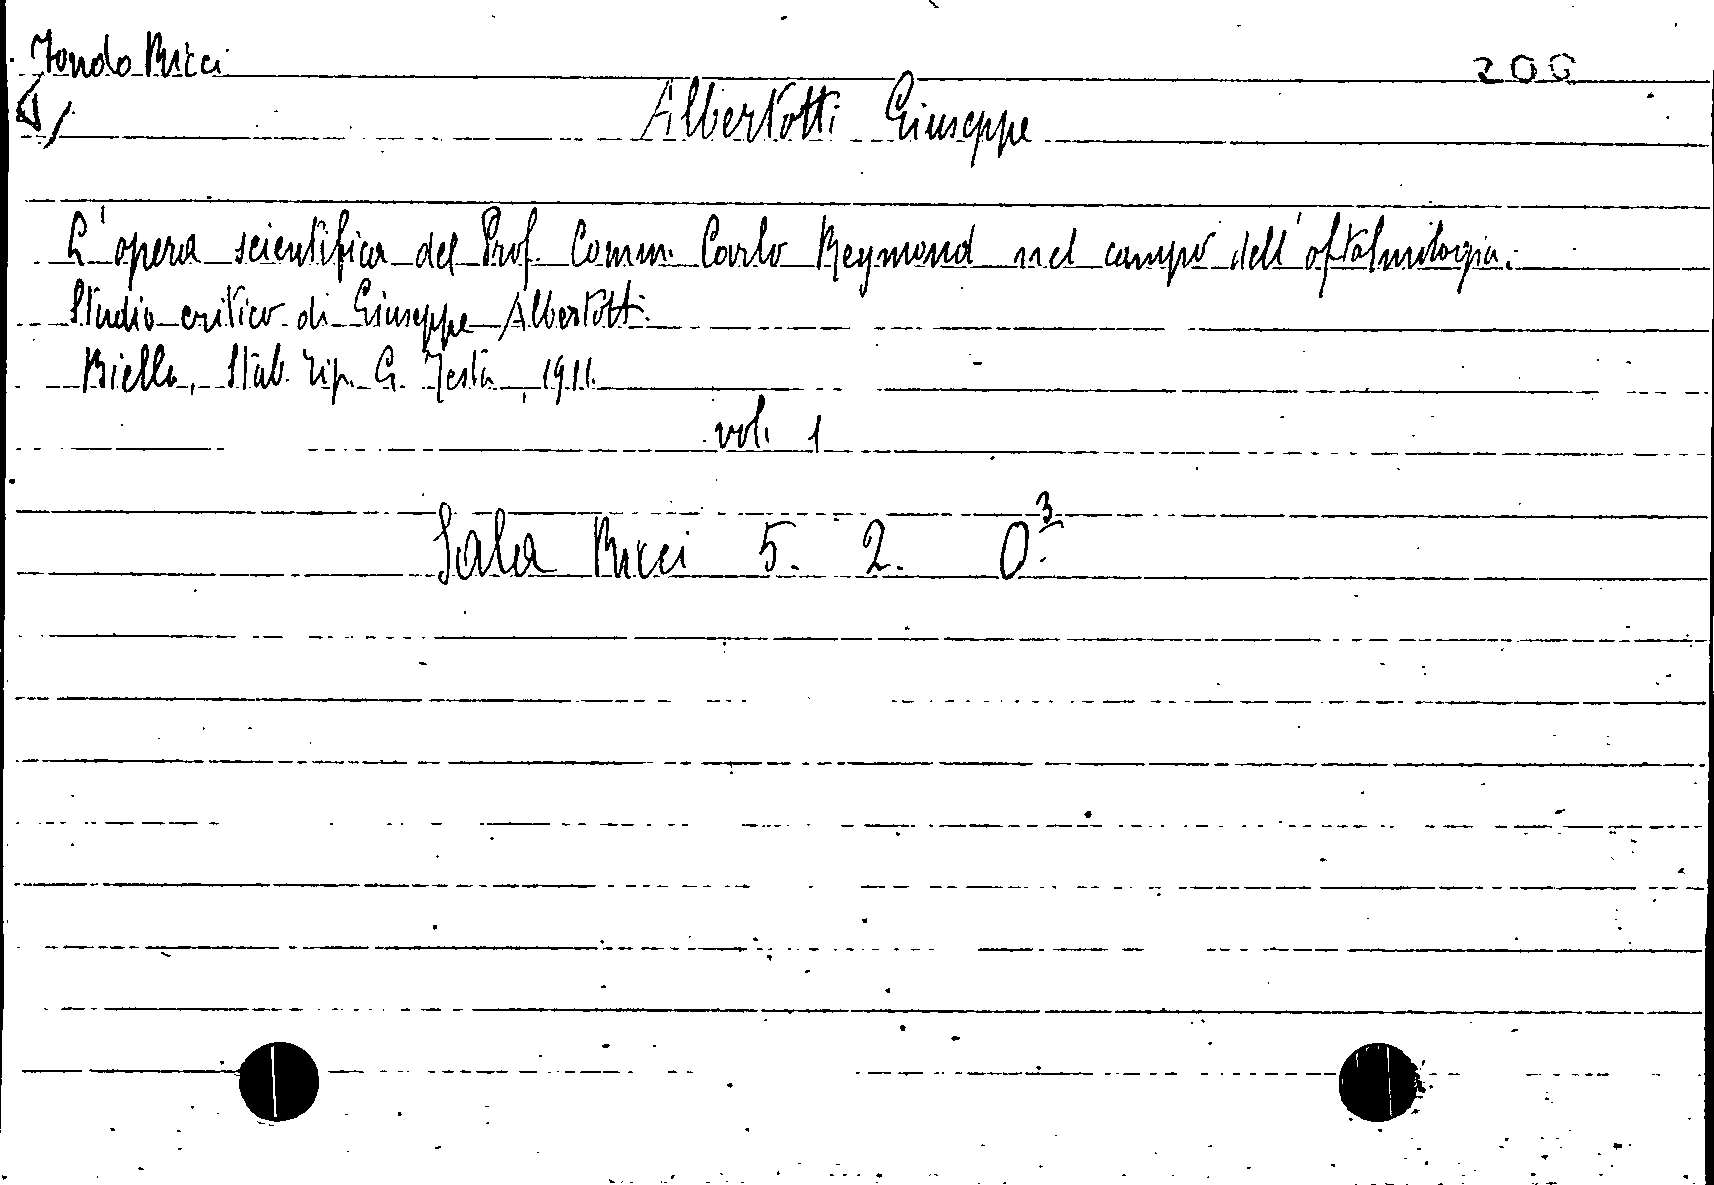 Fondo Ricci
200
Albertotti Giuseppe
L'opera scientifica del Prof. Comm. Carlo Reymond nel campo dell'oftalmologia.
Studio critico di Giuseppe Albertotti.
Biella, Stab. Tip. G. Testa, 1911.
vol. 1
Sala Ricci 5. 2. 0.³